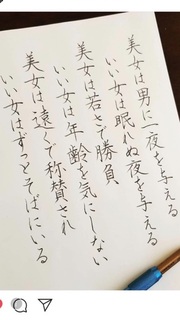 美女は男に一夜を与える
いい女は眠れぬ夜を与える
美女は若さで勝負、
いい女は年齢を気にしない
美女は遠くで称賛され
いい女はずっとそばにいる